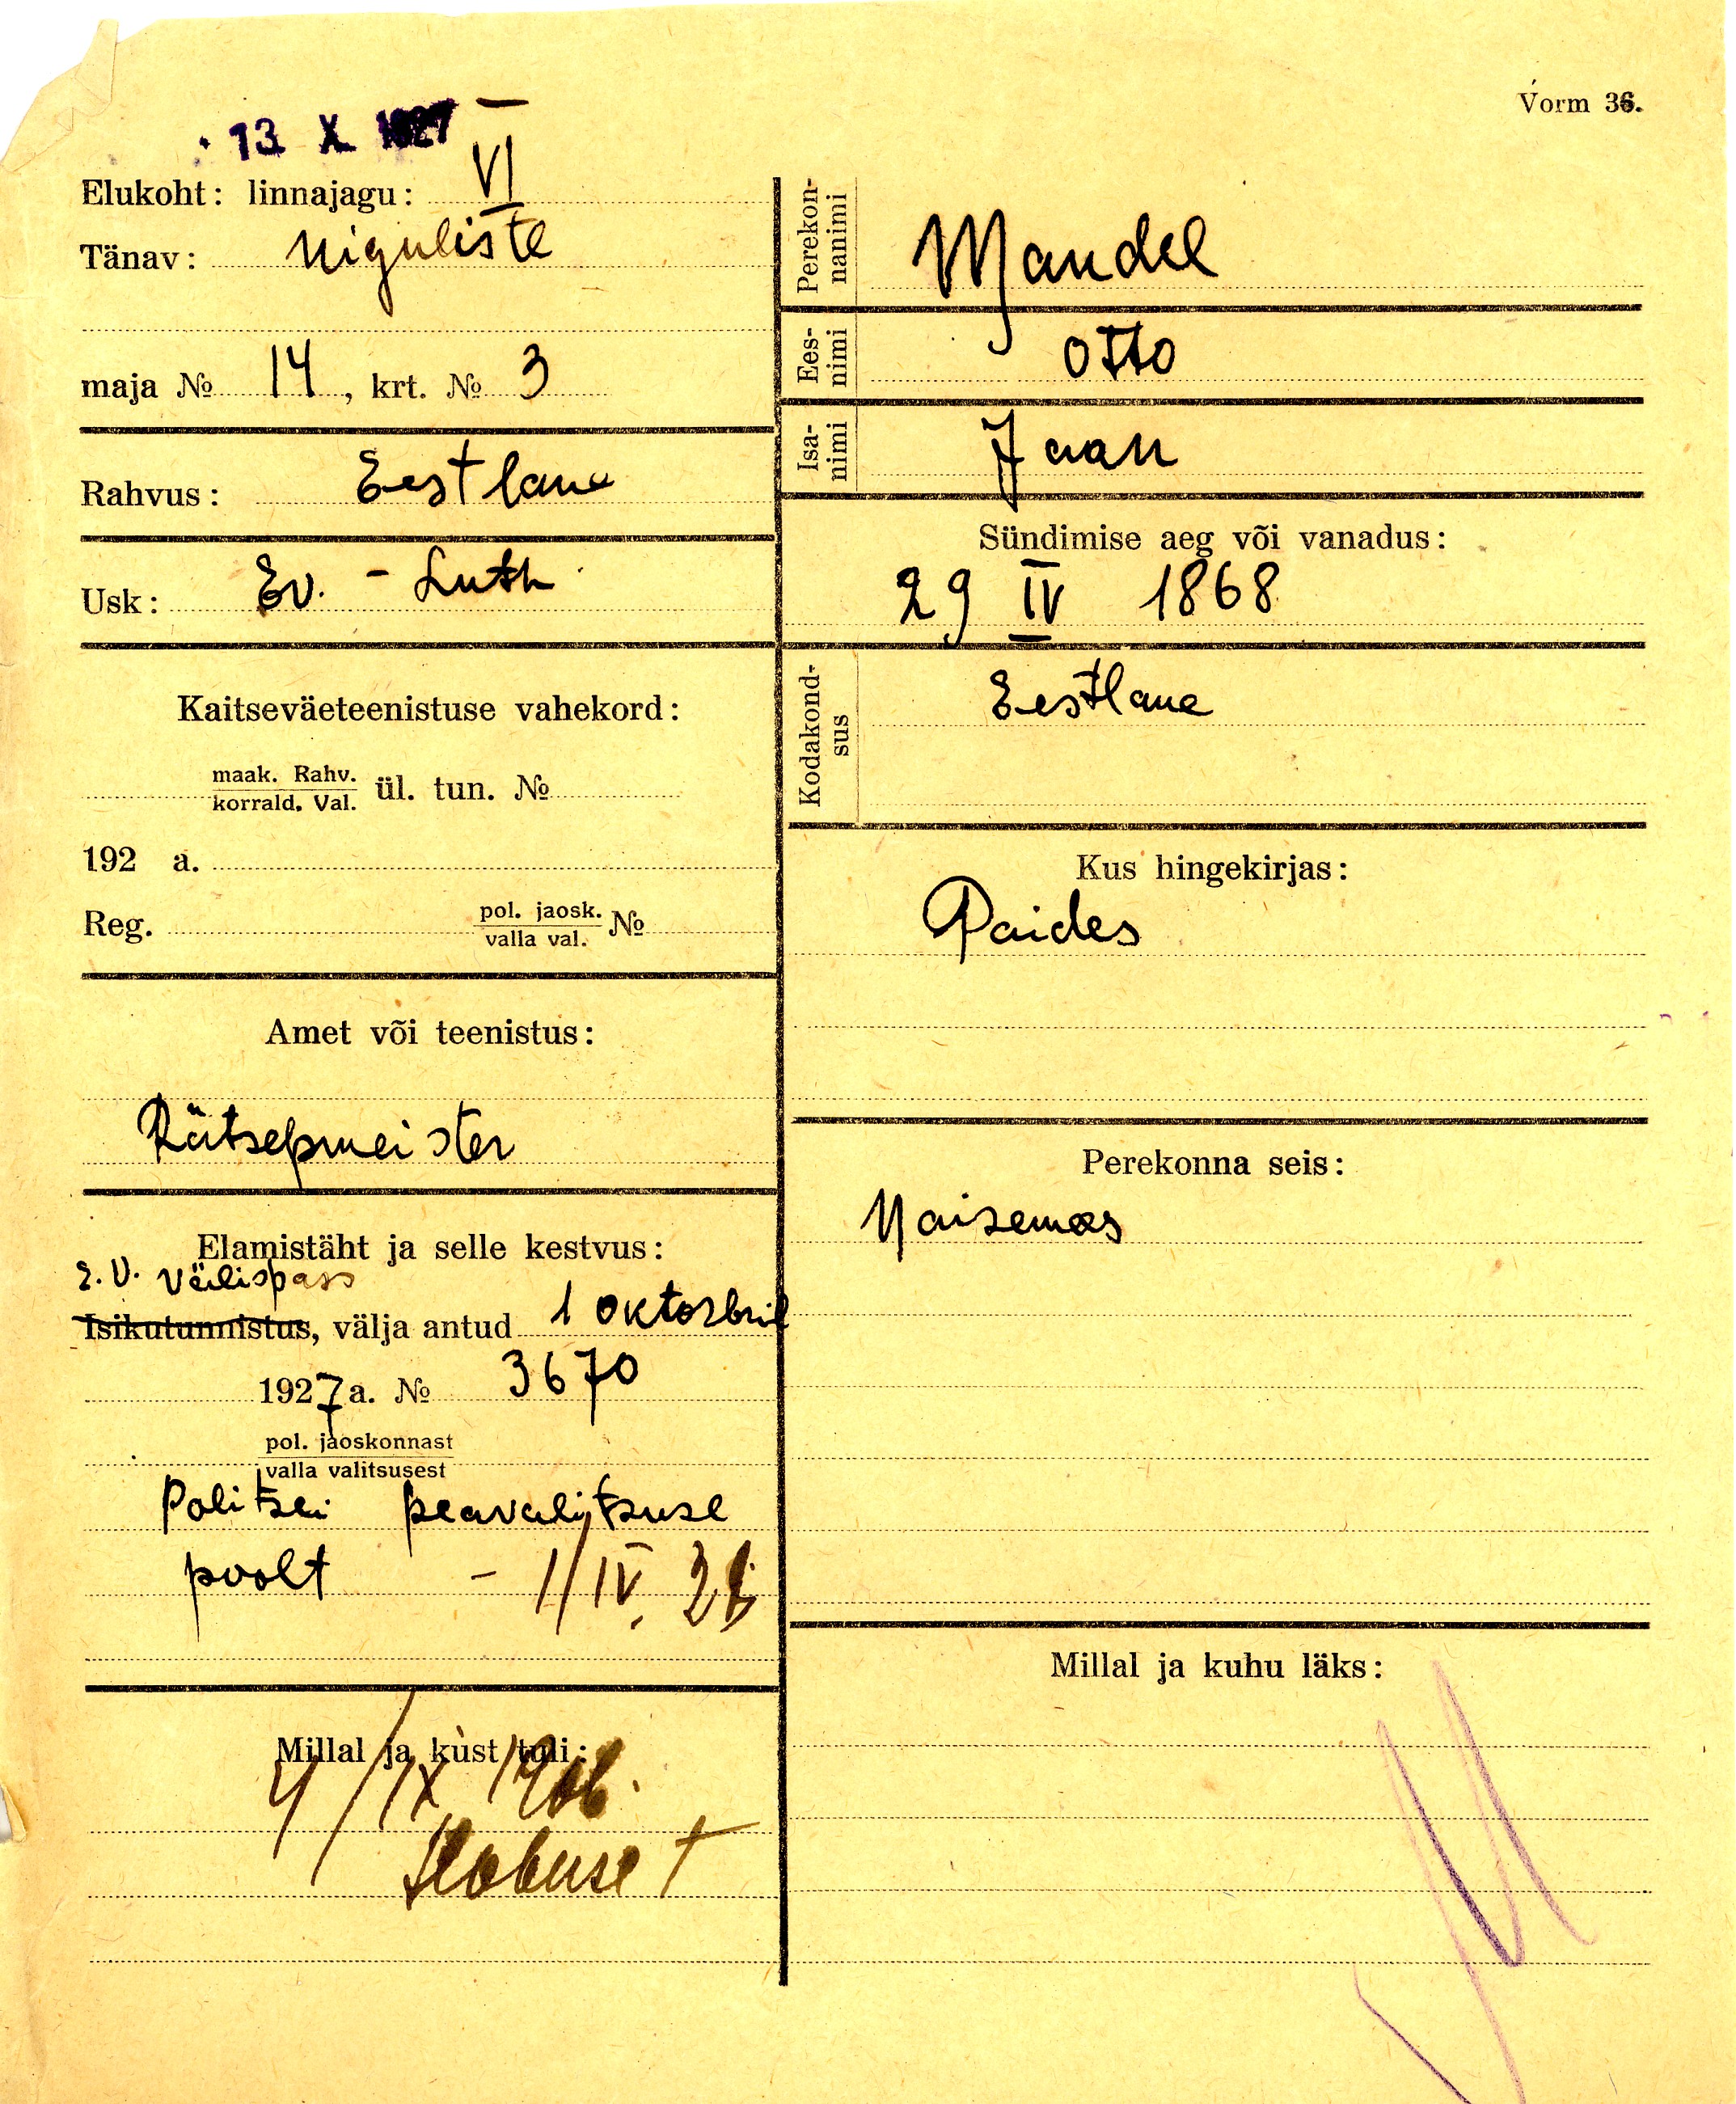 Vorm 36.
13 X 1927
Elukoht: linnajagu: VI
Tänav: Niguliste
maja № 14, krt. № 3
Rahvus: Eestlane
Usk: Ev. - Luth
Kaitseväeteenistuse vahekord:
maak. Rahv.
korrald. Val. ül. tun. №
192 a.
Reg. pol. jaosk. №
valla val.
Amet või teenistus:
Rätsepmeister
Elamistäht ja selle kestvus:
E.V. Välispass
Isikutunnistus, välja antud 1 oktoobril
1927 a. № 3670
pol. jaoskonnast
valla valitsusest
Politsei peavalitsuse
poolt - 1/IV.
Millal ja kust tuli:
4/IX
Hobuse t
Perekon-
nanimi Mandel
Ees-
nimi Otto
Isa-
nimi Jaan
Sündimise aeg või vanadus:
29 IV 1868
Kodakond-
sus Eestlane
Kus hingekirjas:
Paides
Perekonna seis:
Naisemees
Millal ja kuhu läks: